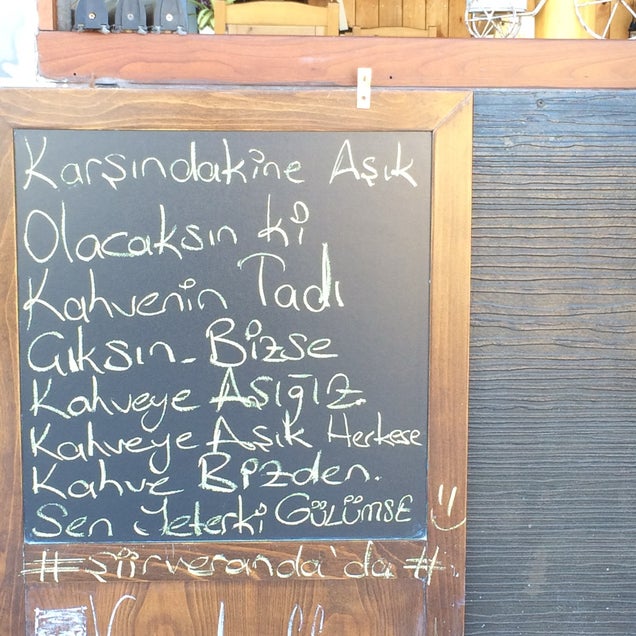 Karşındakine Aşık
Olacaksın ki
Kahvenin Tadı
Çıksın.. Bizse
Kahveye Aşığız.
Kahveye Aşık Herkese
Kahve Bizden.
Sen Yeterki GÜLÜMSE
#şiirveranda'da#